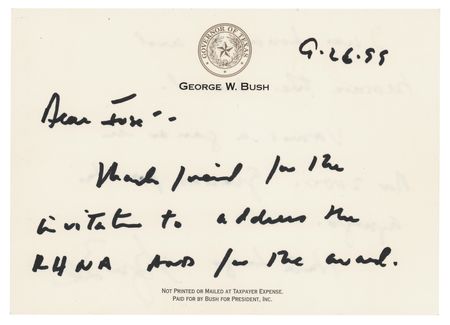 GOVERNOR OF TEXAS
9.26.99
GEORGE W. BUSH
Dear Jose--
Thanks friend for the
invitation to address the
RHNA AND for the award.
NOT PRINTED OR MAILED AT TAXPAYER EXPENSE.
PAID FOR BY BUSH FOR PRESIDENT, INC.